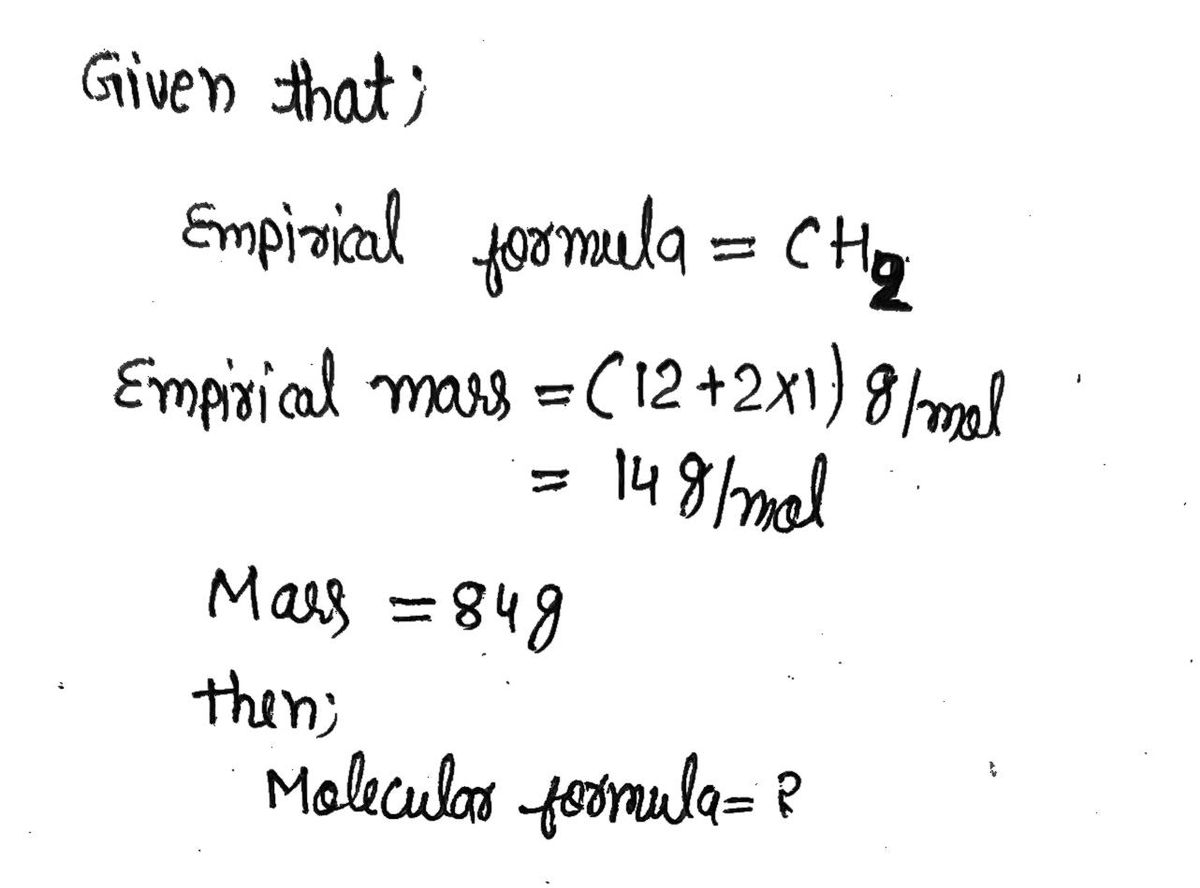 Given that;
Empirical formula = CH₂
Empirical mass = (12+2×1) g/mol
= 14 g/mol
Mass = 84g
then;
Molecular formula= ?